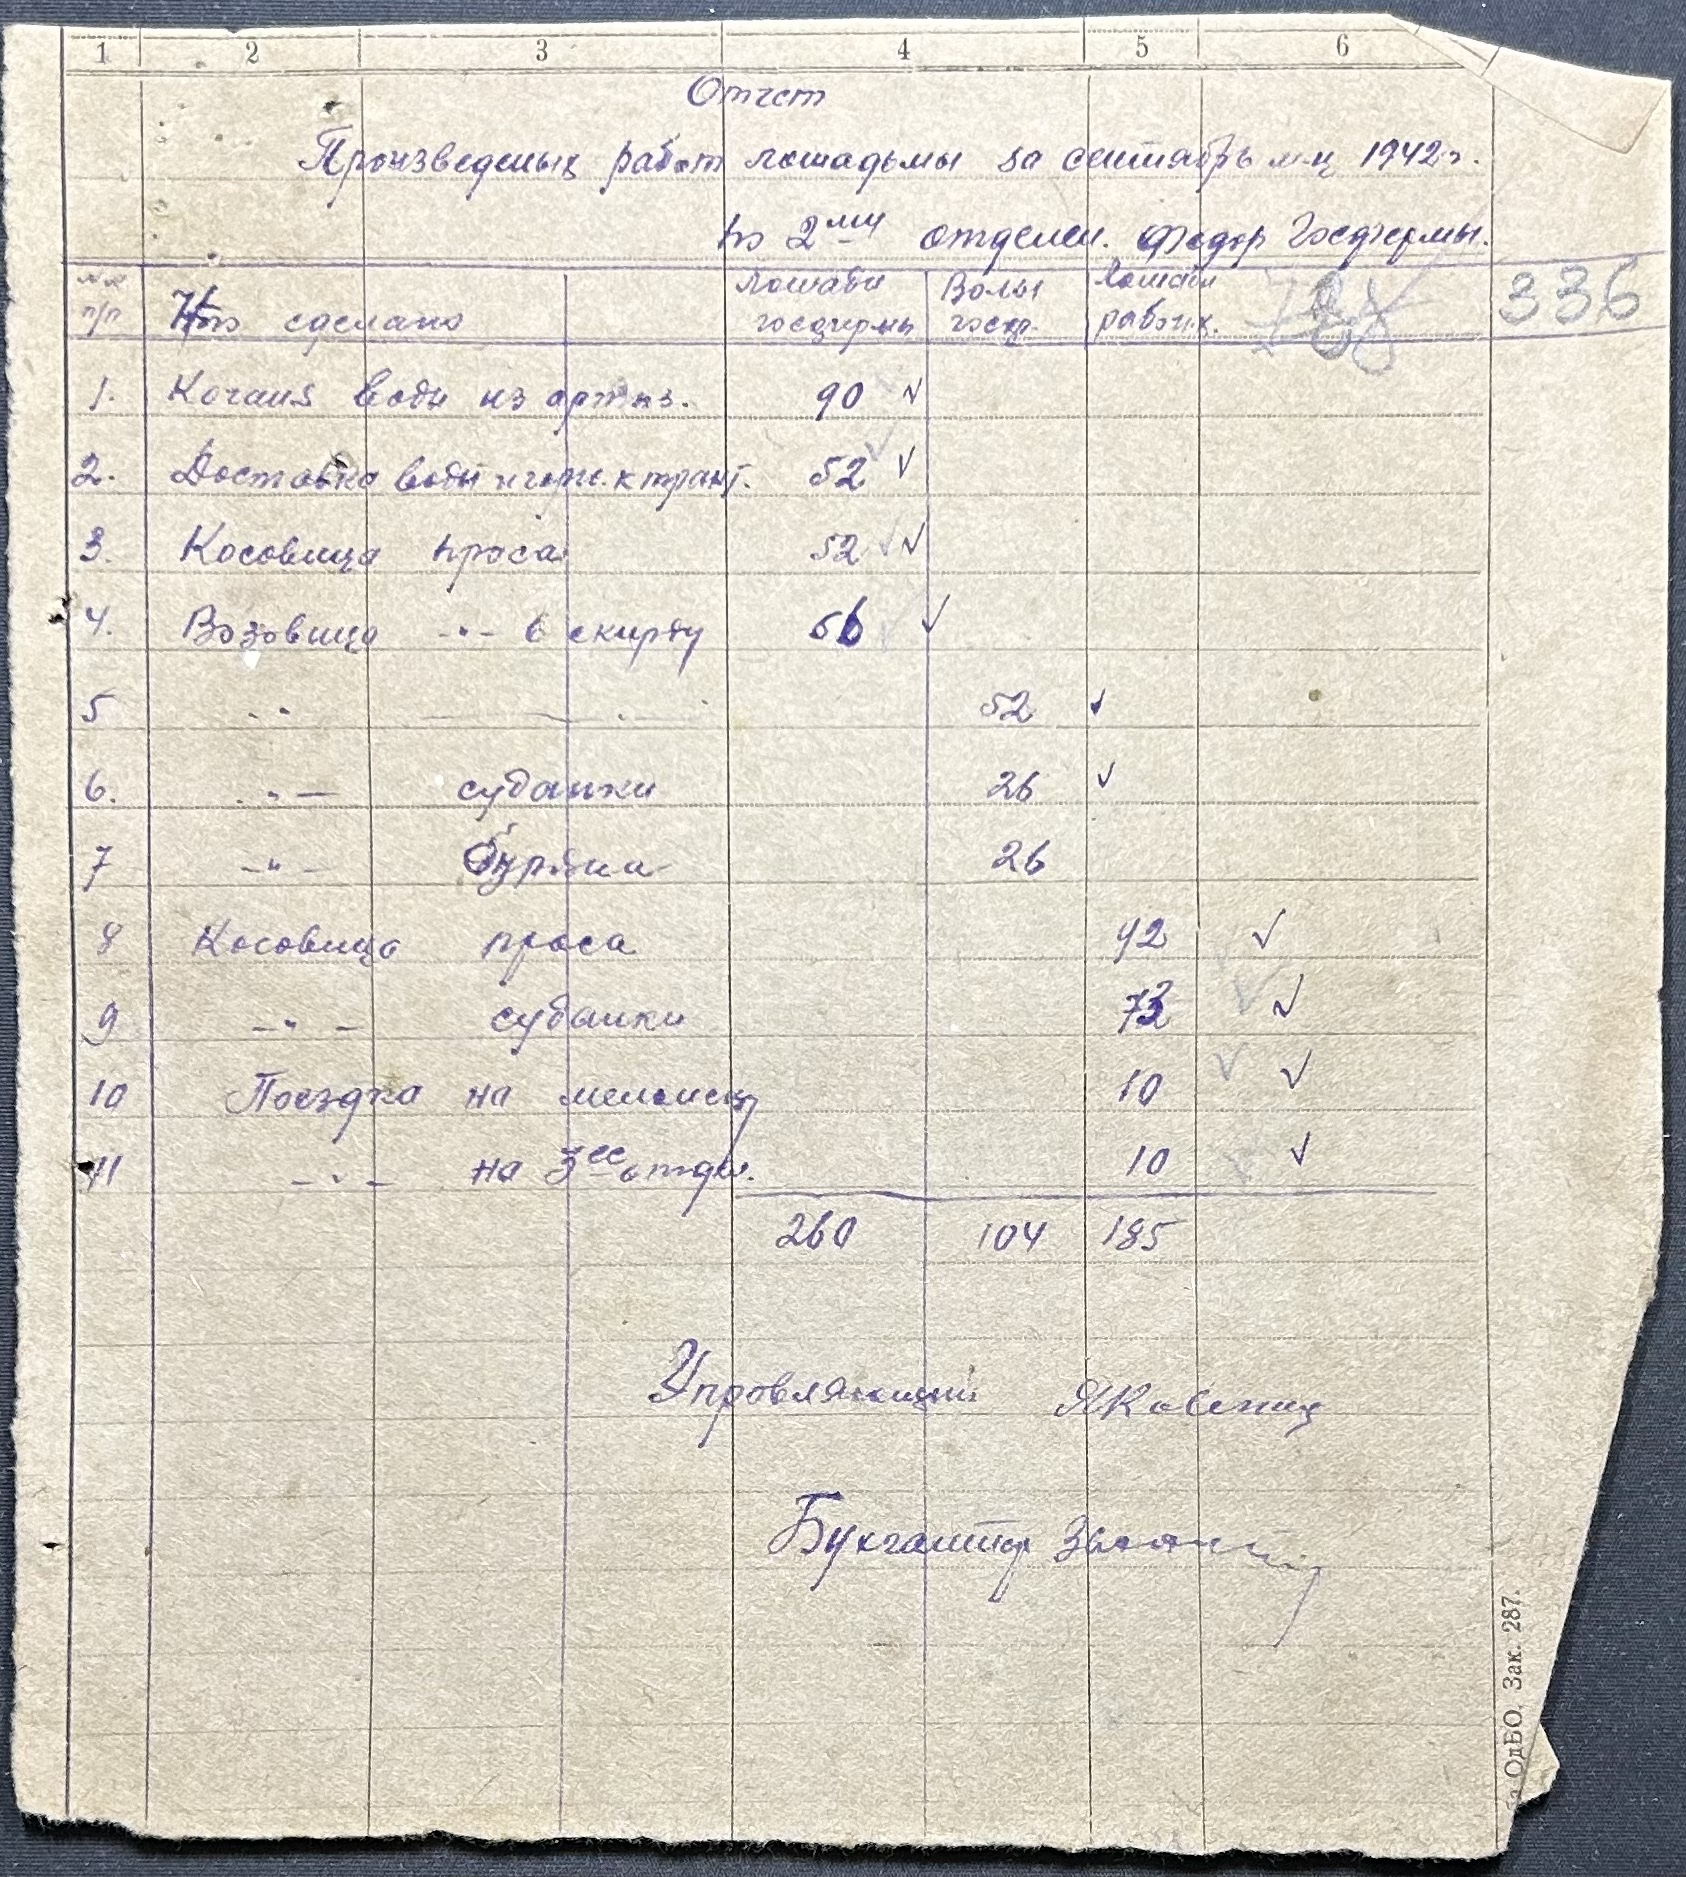 1 2 3 4 5 6
Отчет
Произведеных работ лошадьмы за сентябрь м-ц 1942 г.
по 2ми отделен. Федор Госфермы.
№№ п/п Что сделано Лошади госфермы Волы госф. Лошади рабочх. 336
1. Качание воды из артиз. 90 ✓
2. Доставка воды и горюч. к тракт. 52 ✓
3. Косовица проса 52 ✓
4. Возовица -"- в скирду 66 ✓
5 -"- 52 ✓
6. -"- суданки 26 ✓
7 -"- бурьяна 26
8 Косовица проса 92 ✓
9 -"- суданки 73 ✓
10 Поездка на мельницу 10 ✓
11 -"- на 3ее отдел. 10 ✓
260 104 185
Упровляющий Яковениц
Бухгалтер
ОдБО. Зак. 287.